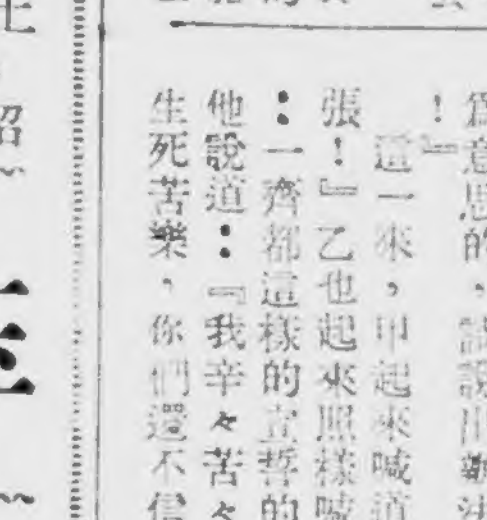 為意思的，請說出辦法
！』
這一來，甲起來喊道
張！』乙也起來照樣喊
：一齊都這樣的立誓的
他說道：『我辛々苦々
生死苦樂，你們還不信